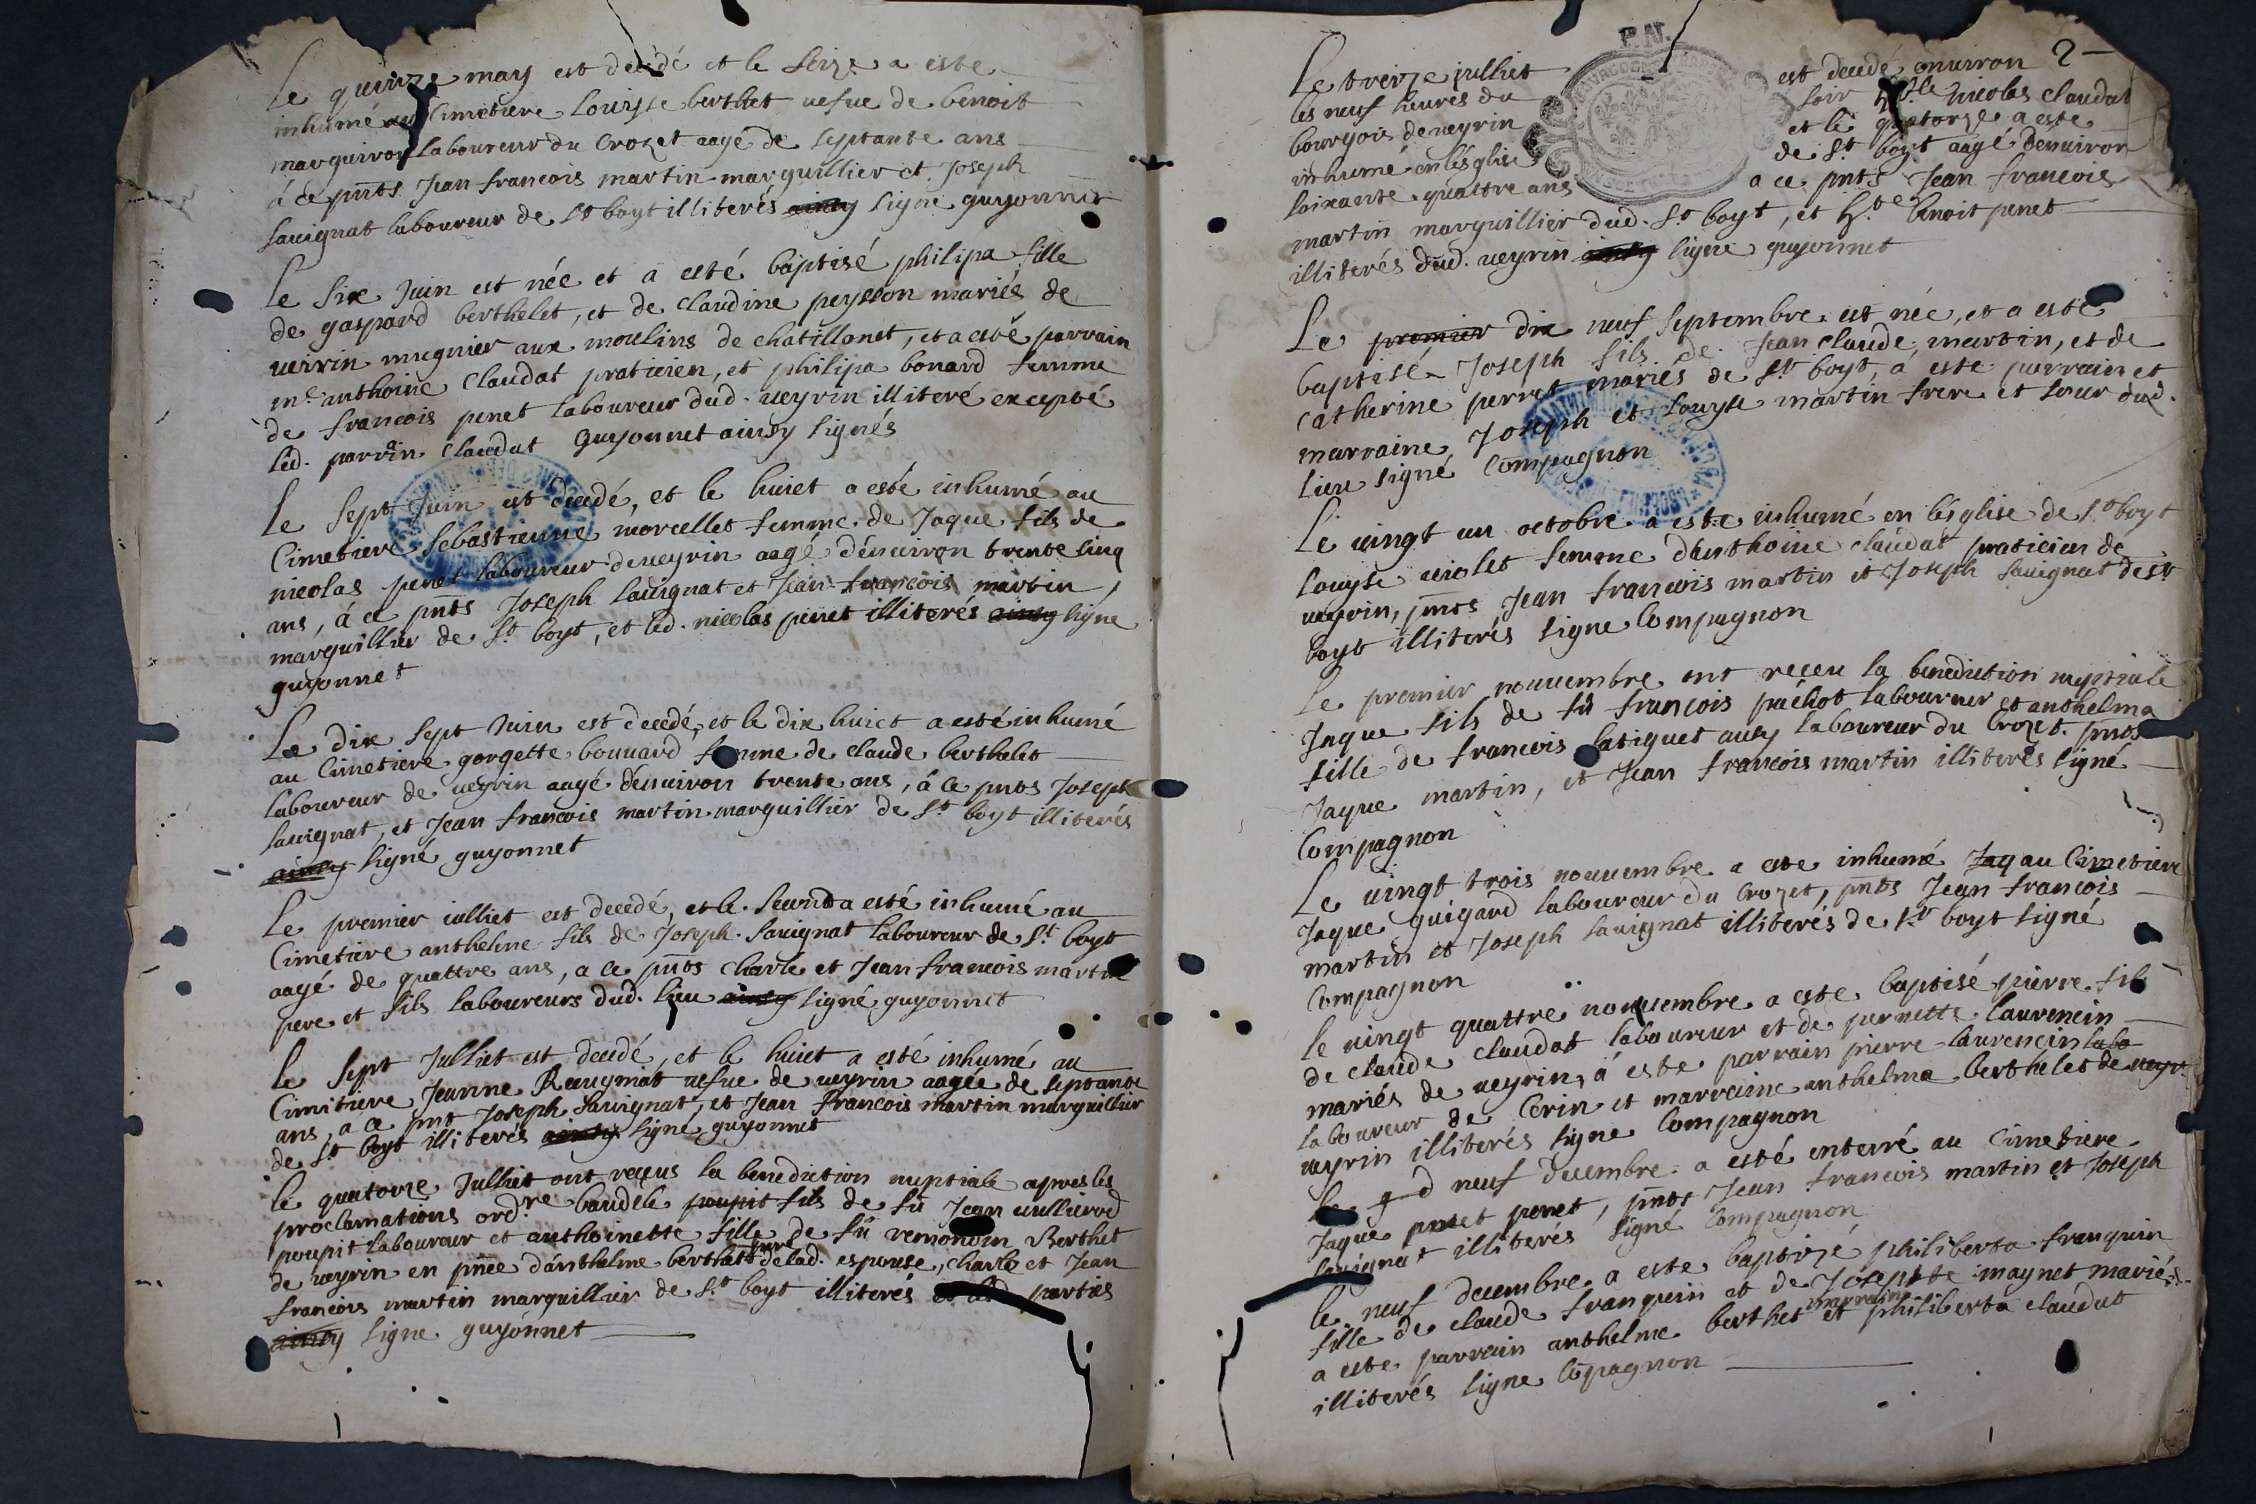 Le quinze may est decedé et le seize a este
inhumé au Cimetiere Louyse berthet uefue de benoit
marguiron laboureur du Crozet aagé de septante ans
á ce pnts Jean francois martin marguillier et Joseph
sauignat laboureur de St boyt illiterés ainsy signé guyonnet
Le six Juin est née et a esté baptisé philipa fille
de gaspard berthelet, et de claudine peysson mariés de
ueirin mugnier aux moulins de chatillonet, et a esté parrain
me anthoine Claudat praticien, et philipa bonard femme
de francois penet laboureur dud. ueyrin illiteré excepté
led. parrin Claudat guyonnet ainsy signés
Le sept Juin est decedé, et le huict a esté inhumé au
Cimetiere sebastienne morcellet femme de Jaque fils de
nicolas penet laboureur de ueyrin aagé dénuiron trente cinq
ans, á ce pnts Joseph sauignat et Jean francois martin,
marguillier de St boyt, et led. nicolas penet illiterés ainsy signe
guyonnet
Le dix sept Juin est decedé, et le dix huict a esté inhumé
au Cimetiere gorgette bouuard femme de claude berthelet
laboureur de ueyrin aagé denuiron trente ans, á ce pnts Joseph
sauignat, et Jean francois martin marguillier de St boyt illiterés
ainsy signé guyonnet
Le premier iulliet est decedé, et le second a esté inhumé au
Cimetiere anthelme fils de Joseph sauignat laboureur de St boyt
aagé de quattre ans, a ce pnts charle et Jean francois martin
pere et fils laboureurs dud. lieu ainsy signé guyonnet
Le sept Julliet est decedé, et le huict a esté inhumé au
Cimitiere Jeanne Reuyniat uefue de ueyrin aagée de septante
ans, a ce pnt Joseph sauignat, et Jean francois martin marguillier
de St boyt illiterés ainsy signe guyonnet
Le quatorze Julliet ont reçeus la benediction nuptiale apres les
proclamations ordre baudile poupit fils de fû Jean uullierod
poupit laboureur et anthoinette fille de fû remondin Berthet
de ueyrin en pnce d'anthelme berthet frere delad. espouse, charle et Jean
francois martin marguillier de St boyt illiterés et led parties
ainsy signe guyonnet
P.N.
2
Le treize julliet est decedé enuiron
les neuf heures du soir hble nicolas claudat
bourgois de ueyrin et le quatorze a este
inhumé en lésglise de St boyt aagé denuiron
soixante quattre ans a ce pnts Jean francois
martin marguillier dud. St boyt, et hte benoit penet
illiterés dud. ueyrin ainsy signe guyonnet
Le premier dix neuf septembre est née, et a esté
baptisé Joseph fils de Jean claude martin, et de
Catherine perret mariés de St boyt, a este parrain et
marraine Joseph et Louyse martin frere et soeur dud.
lieu signé Compagnon
Le uingt un octobre a este inhumé en lésglise de St boyt
Louyse uiolet femme d'anthoine claudat praticien de
ueyrin, pnts Jean francois martin et Joseph sauignat de St
boyt illiterés signe Compagnon
Le premier nouuembre ont receu la benediction nuptiale
Jaque fils de fû francois pachot laboureur et anthelma
fille de francois latiguet ausy laboureur du Crozet. pnts
Jaque martin, et Jean francois martin illiterés signé
Compagnon
Le uingt trois nouuembre a este inhumé Jaq au Cimetiere
Jaque guigard laboureur du Crozet, pnts Jean francois
martin et Joseph sauignat illiterés de St boyt signé
Compagnon
Le uingt quattre nouuembre a este baptisé pierre fils
de claude claudat laboureur et de pernette laurencin
mariés de ueyrin, a este parrain pierre laurencin labo
laboureur de Cerin et marraine anthelma berthelet de ueyr
ueyrin illiterés signe Compagnon
Le neuf decembre a esté enterré au Cimetiere
Jaque penet, pnts Jean francois martin et Joseph
sauignat illiterés signé Compagnon
Le neuf decembre a este baptizé philiberta franquin
fille de claude franquin et de Josephte maynet mariés
a este parrain anthelme berthet et marraine philiberta claudat
illiterés signe Copagnon